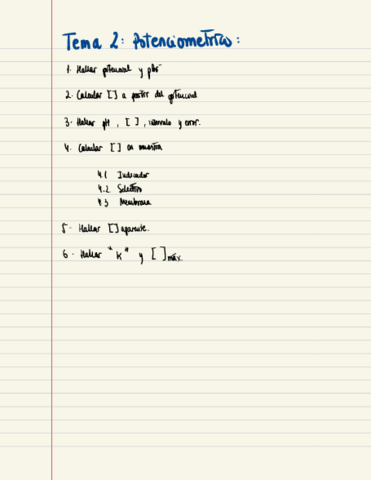 Tema 2: Potenciometrico:
1. Hallar potencial y
2. Calcular [ ] a partir del potencial
3. Hallar pH, [ ], intervalo y error.
4. Calcular [ ] en muestra
4.1 Indicador
4.2 Selectivo
4.3 Membrana
5. Hallar [ ] aparente.
6. Hallar "K" y [ ]máx.